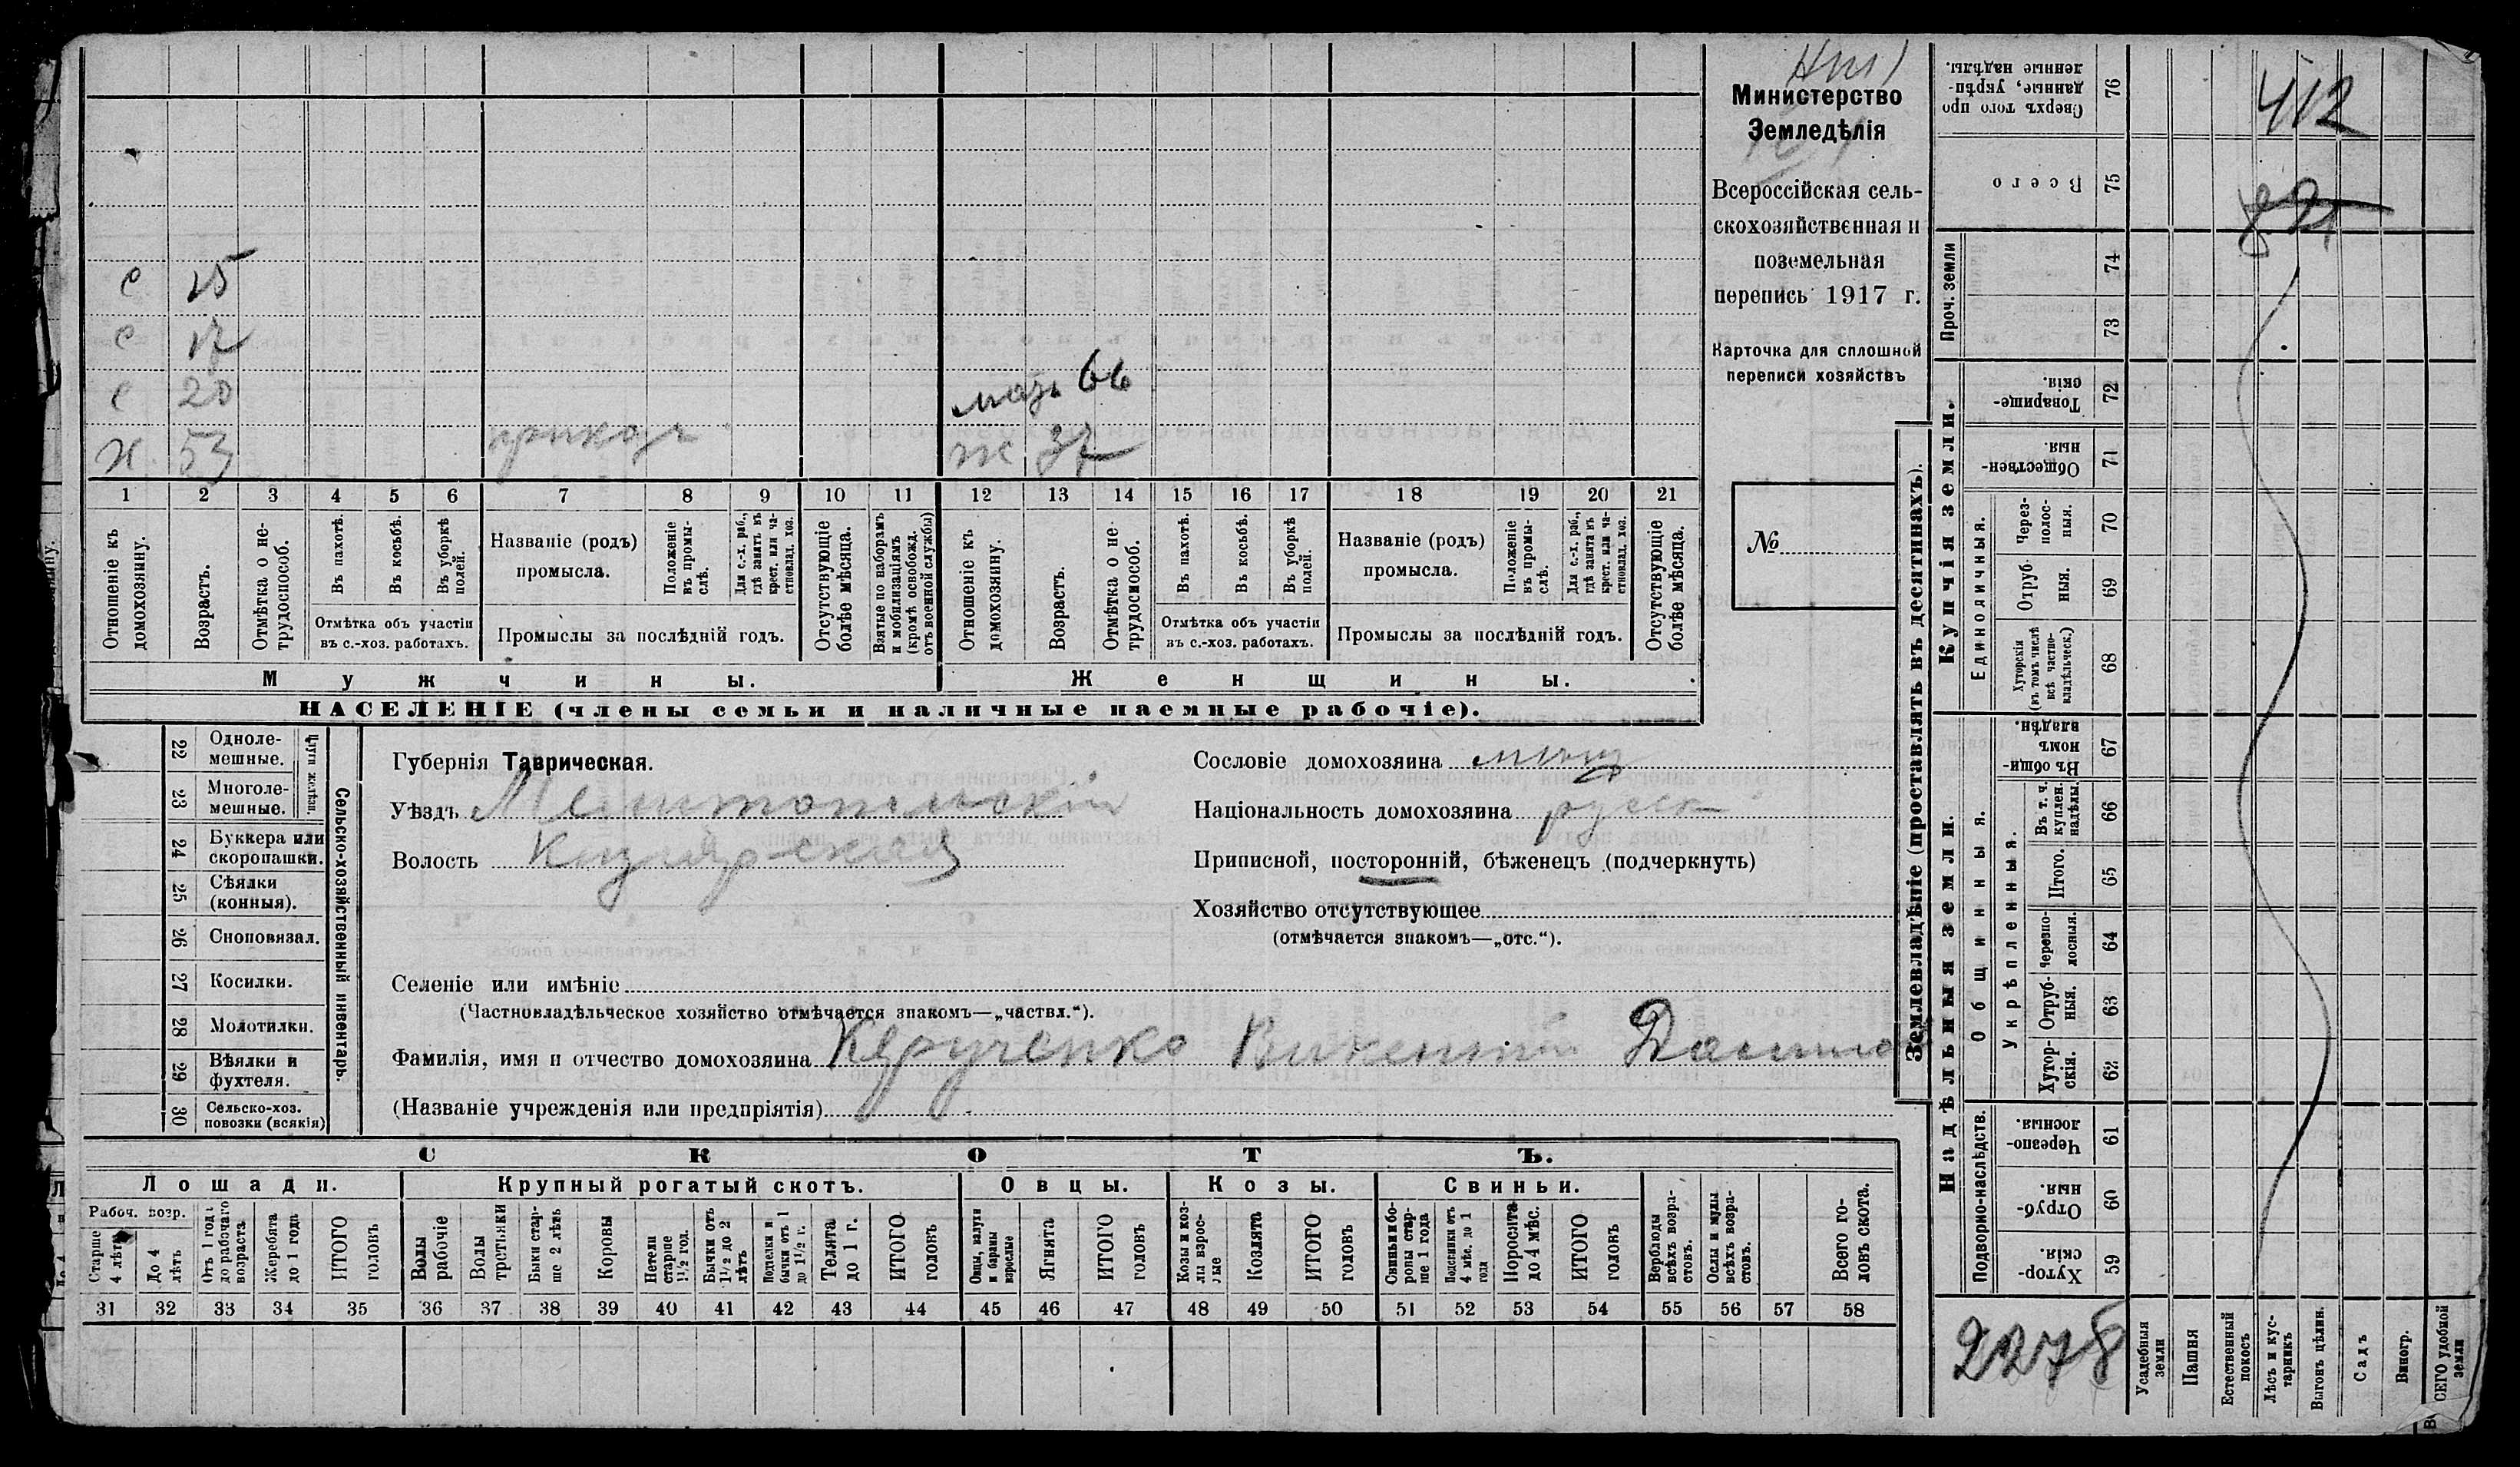 412
Министерство
Земледѣлія
Всероссійская сель-
скохозяйственная и
поземельная
перепись 1917 г.
Карточка для сплошной
переписи хозяйствъ
№
с 25
с 17
с 20
мать 66
х 53
ж 37
1 2 3 4 5 6 7 8 9 10 11 12 13 14 15 16 17 18 19 20 21
Отношеніе къ домохозяину.
Возрастъ.
Отмѣтка о не-трудоспособ.
Въ пахотѣ.
Въ косьбѣ.
Въ уборкѣ полей.
Отмѣтка объ участіи въ с.-хоз. работахъ.
Названіе (родъ) промысла.
Положеніе въ промы-слѣ.
Для с.-х. раб., гдѣ занятъ въ крест. или ча-стновлад. хоз.
Промыслы за послѣдній годъ.
Отсутствующіе болѣе мѣсяца.
Взятые по наборамъ и мобилизаціямъ (кромѣ освобожд. отъ военной службы)
Отношеніе къ домохозяину.
Возрастъ.
Отмѣтка о не трудоспособ.
Въ пахотѣ.
Въ косьбѣ.
Въ уборкѣ полей.
Отмѣтка объ участіи въ с.-хоз. работахъ.
Названіе (родъ) промысла.
Положеніе въ промы-слѣ.
Для с.-х. раб., гдѣ занята въ крест. или ча-стновлад. хоз.
Промыслы за послѣдній годъ.
Отсутствующіе болѣе мѣсяца.
Мужчины.
Женщины.
НАСЕЛЕНІЕ (члены семьи и наличные наемные рабочіе).
22 Одноле-мешные.
23 Многоле-мешные.
24 Буккера или скоропашки.
25 Сѣялки (конныя).
26 Сноповязал.
27 Косилки.
28 Молотилки.
29 Вѣялки и фухтеля.
30 Сельско-хоз. повозки (всякія)
Сельско-хозяйственный инвентарь.
Губернія Таврическая.
Уѣздъ Мелитопольскій
Волость
Сословіе домохозяина мѣщ
Національность домохозяина русск
Приписной, посторонній, бѣженецъ (подчеркнуть)
Хозяйство отсутствующее
(отмѣчается знакомъ—„отс.“).
Селеніе или имѣніе
(Частновладѣльческое хозяйство отмѣчается знакомъ—„частвл.“).
Фамилія, имя и отчество домохозяина Викентій
(Названіе учрежденія или предпріятія)
СКОТЪ.
Лошади. Крупный рогатый скотъ. Овцы. Козы. Свиньи.
Рабоч. возр.
Старше 4 лѣтъ
До 4 лѣтъ
Отъ 1 года до рабочаго возраста
Жеребята до 1 года
ИТОГО головъ
Волы рабочіе
Волы третьяки
Быки стар-ше 2 лѣтъ
Коровы
Нетели старше 1½ год.
Бычки отъ 1½ до 2 лѣтъ
Подтелки и бычки отъ 1 до 1½ г.
Телята до 1 г.
ИТОГО головъ
Овцы, валухи и бараны взрослые
Ягнята
ИТОГО головъ
Козы и коз-лы взрос-лые
Козлята
ИТОГО головъ
Свиньи и бо-ровы стар-ше 1 года
Подсвинки отъ 4 мѣс. до 1 года
Поросята до 4 мѣс.
ИТОГО головъ
Верблюды всѣхъ возра-стовъ.
Ослы и мулы всѣхъ возра-стовъ.
Всего го-ловъ скота.
31 32 33 34 35 36 37 38 39 40 41 42 43 44 45 46 47 48 49 50 51 52 53 54 55 56 57 58
Землевладѣніе (проставлять въ десятинахъ).
Надѣльныя земли. Купчія земли. Проч. земли
Сверхъ того про данные, укрѣп-ленные надѣлы. 76
Всего 75
74
73
Товарище-скія. 72
Обществен-ныя 71
Единоличныя.
Через-полос-ныя. 70
Отруб-ныя. 69
Хуторскія (въ томъ числѣ всѣ частно-владѣльческ.) 68
Общинныя.
Въ общи-номъ владѣн. 67
Укрѣпленныя.
Въ т. ч. куплен. надѣлы. 66
Итого. 65
Черезпо-лосныя. 64
Отруб-ныя. 63
Хутор-скія. 62
Подворно-наслѣдств.
Черезпо-лосныя. 61
Отруб-ныя. 60
Хутор-скія. 59
2278
Усадебныя земли
Пашня
Естественный покосъ
Лѣсъ и кус-тарникъ
Выгонъ цѣлин.
Садъ
Виногр.
ВСЕГО удобной земли